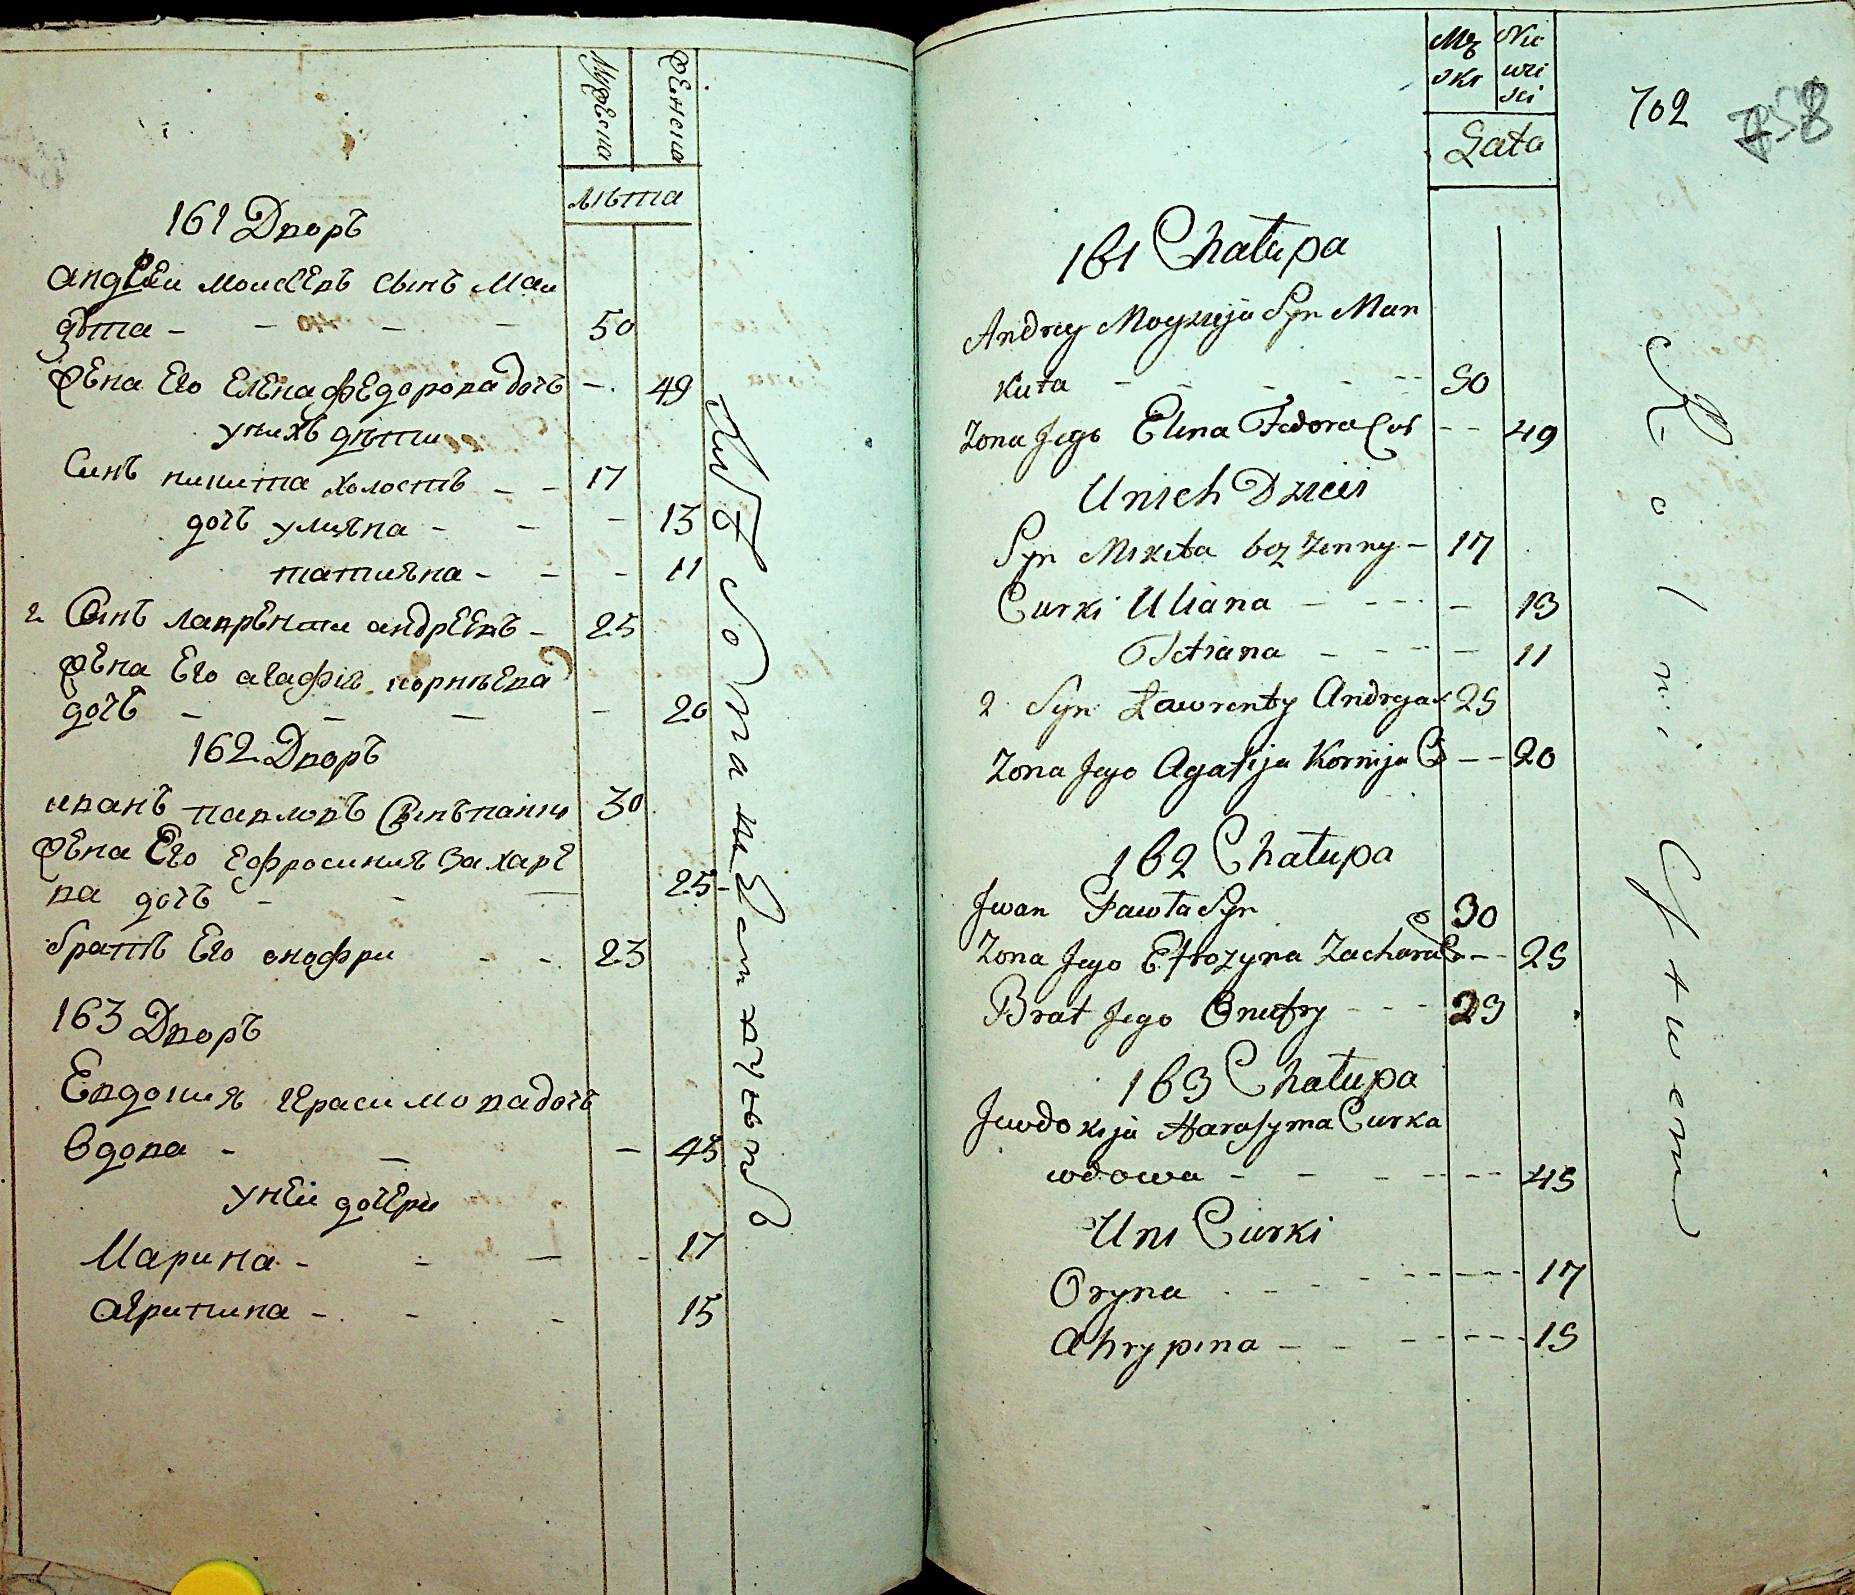 Мужеска
Женска
лѣта
161 Дворъ
Андреи Моисеевъ сынъ Ман
зюта - - - - 50
Жена Его Елена Федорова дочь - 49
у нихъ дѣти
Синъ Никита холостъ - - 17
дочь Улияна - - - 13
Татияна - - - 11
2 Сынъ Лаврѣнти Андреевъ - 25
Жена Его Агафія Корнѣева
дочь - - - - 20
162 Дворъ
Иванъ Павловъ Сынъ 30
Жена Его Ефросиния Захаре
ва дочь - - - 25
братъ Его Онофри - - 23
163 Дворъ
Евдокия Герасимова дочь
Вдова - - - 45
у неи дочери
Марина - - - - 17
Агрипина - - - - 15
Męz
skι
Nie
wie
sci
702
758
Lata
161 Chałupa
Andrey Moyzyja Syn Man
kuta - - - - - 50
Zona Jego Elena Fedora Cor - - 49
U nich Dzieci
Syn Mikita bez zenny - 17
Curki Uliana - - - - 13
Tetiana - - - - 11
2 Syn Ławrenty Andryja 25
Zona Jego Agafija Kornija C - - 20
162 Chałupa
Jwan Pawła Syn 30
Zona Jego Efrozyna Zachara C - - 25
Brat Jego Onufry - - - 23
163 Chałupa
Jewdokija Harasyma Curka
wdowa - - - - - - 45
U ni Curki
Oryna - - - - - - 17
Ahrypina - - - - - - 15